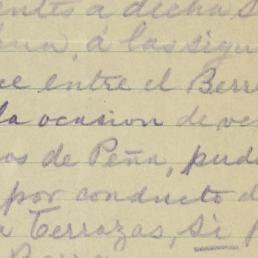 entes a dicha S
á las sigu
ce entre el Berr
la ocasion de ve
os de Peña, pud
por conducto d
a Terrazas, Si